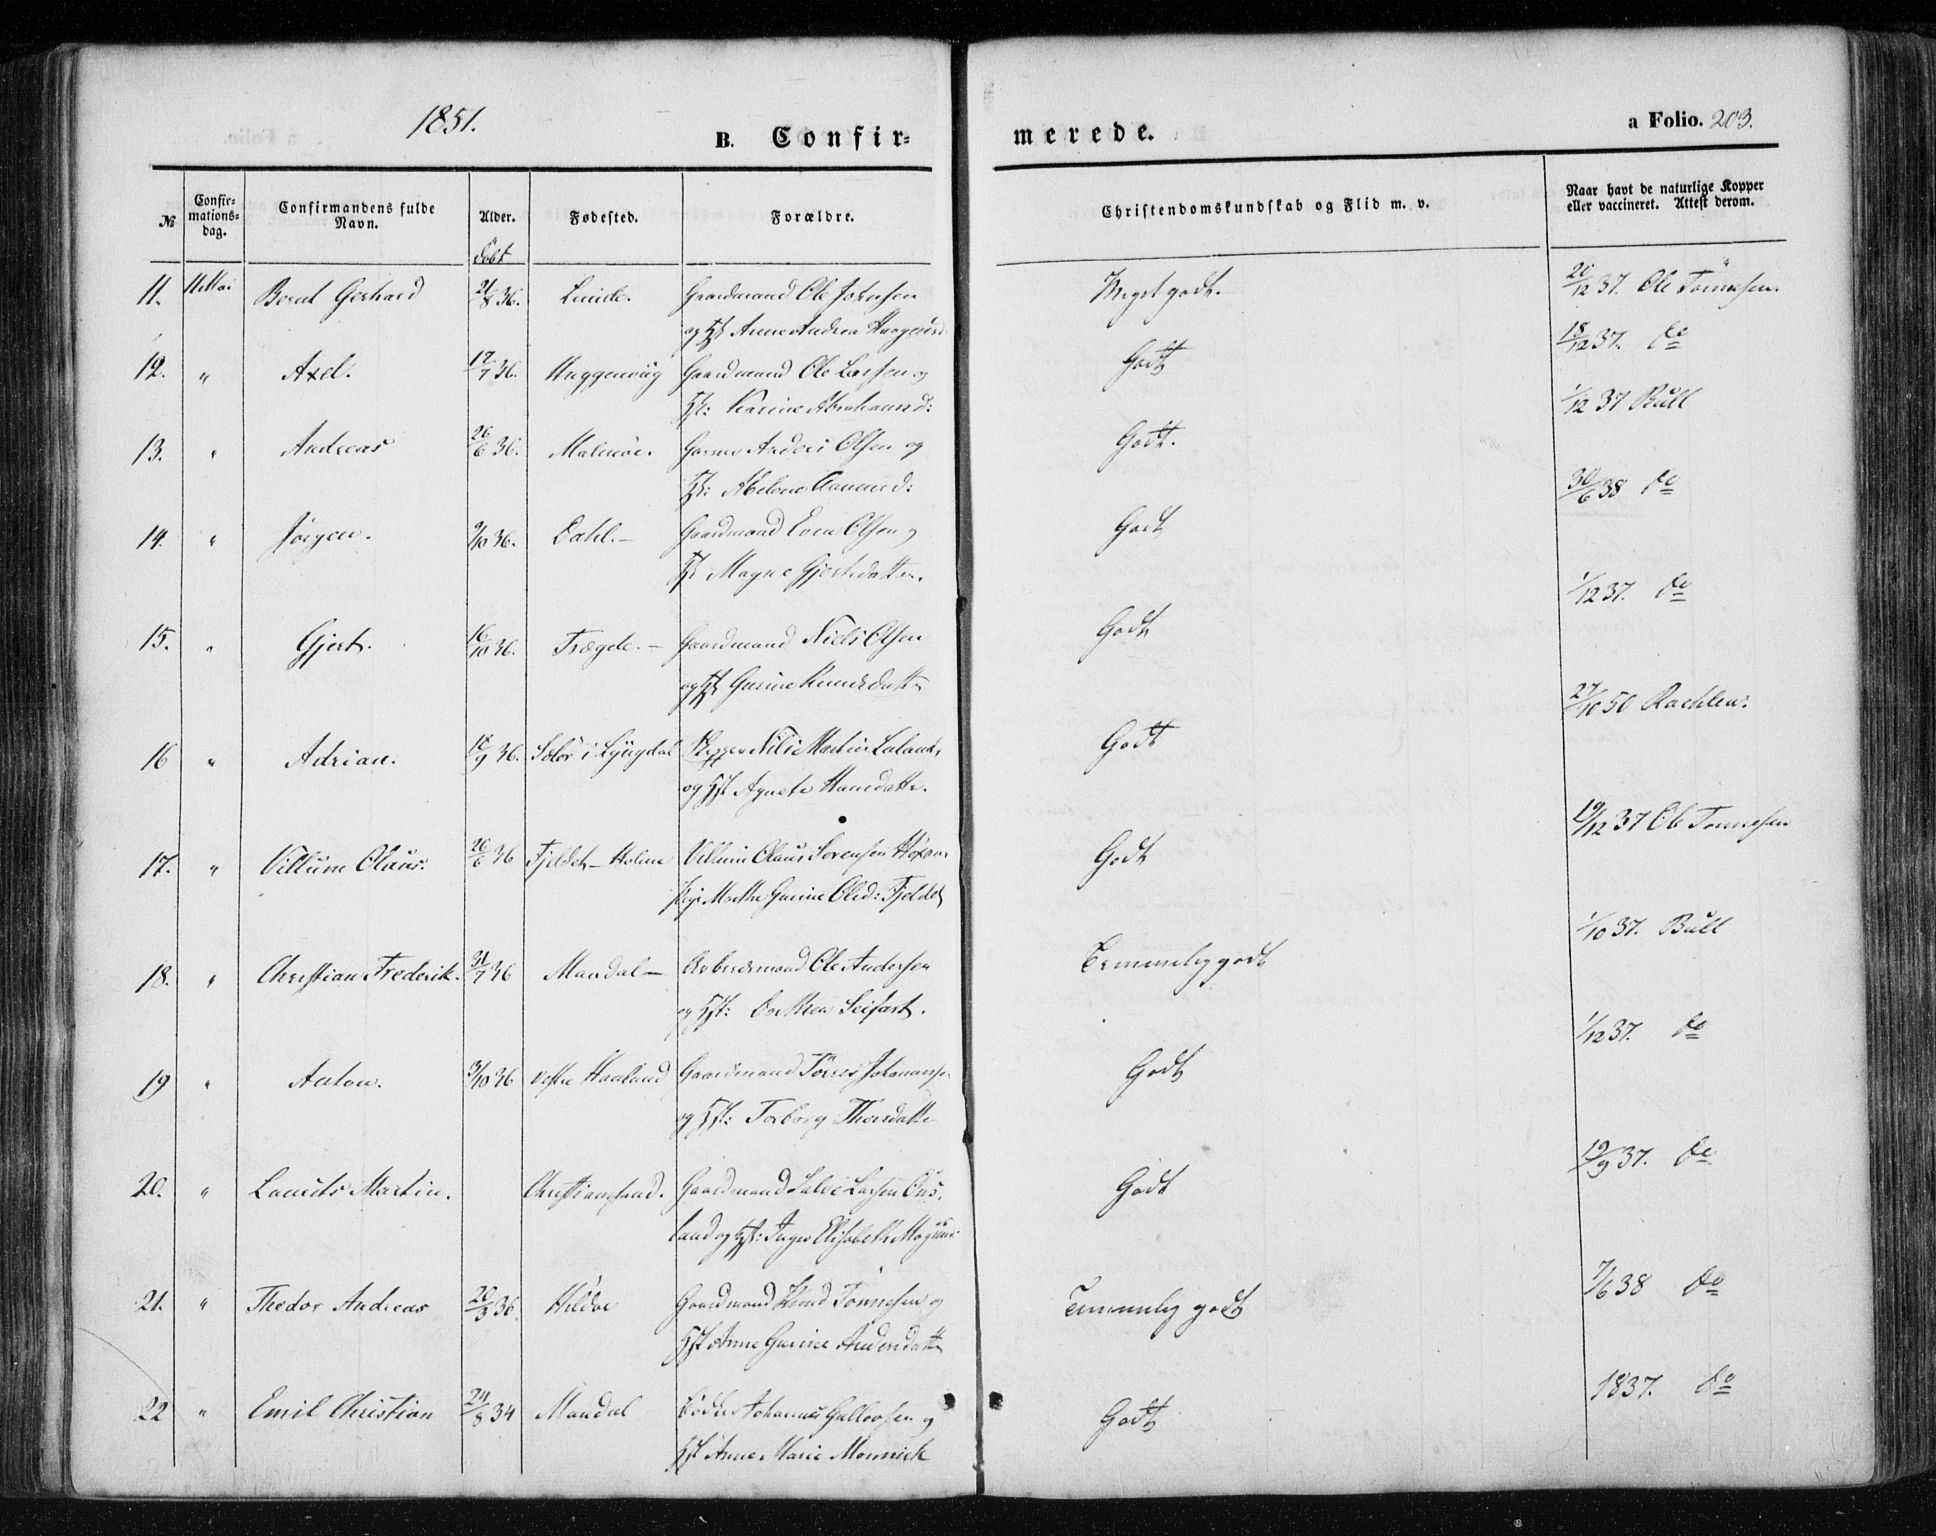 1851.
B. Confir=
merede.
a Folio. 203.
№
Confir-
mations-
dag.
Confirmandens fulde
Navn.
Alder.
Døbt
Fødested.
Forældre.
Christendomskundskab og Flid m. v.
Naar havt de naturlige Kopper
eller vaccineret. Attest derom.
11. 11 Mai Bernt Gerhard 21/8 36. Lunde. Gaardmand Ole
og Anne Andrea
Meget godt.
20/12 37. Ole Tønnesen.
12. " Axel. 17/7 36. Gaardmand Ole Larsen og
Karine Abrahamsd:
Godt
18/12 37. do
13. " Andreas 26/6 36. Malmøe. Olsen og
Abelone
Godt.
1/12 37 Bull
14. " Jørgen. 9/10 36. Dahl. — Gaardmand Even Olsen og
Magne Gjertsdatter.
Godt
30/6 38 do
15. " Gjert. 16/10 36. Trægde. — Gaardmand Niels Olsen
og Gurine
Godt
1/12 37. do
16 " Adrian. 18/9 36. Selør i Lyngdal Martin
og Hst Agnete Hansdatter.
Godt
27/10 50
17. " Villum Olaus. 26/6 36 Fjeldet — Holme Villum Olaus Sørensen
Pige Marthe Gurine Olsd: Fjeldet
Godt
19/12 37 Ole Tønnesen
18. " Christian Frederik. 31/7 36 Mandal — Arbeidsmand Ole Andersen
og Hst: Dorthea Seifart.
Temmelig godt
1/10 37. Bull
19 " Anton. 3/10 36 Vestre Haaland Gaardmand Tørres
og Hst: Torborg
Godt
1/12 37. do
20. " Laurits Martin. Christiansand. Gaardmand Salve Larsen
land og Hst: Inger Elisabeth
Godt
19/9 37. do
21. " Thedor Andreas 20/3 36. Hildøe Gaardmand Knud Tønnesen og
Hst Anne Gurine Andersdatter
Temmelig godt
7/6 38 do
22 " Emil Christian 24/8 34 Mandal Bødker Johannes Gullovsen og
Hst Anne Marie
Godt
1837. do